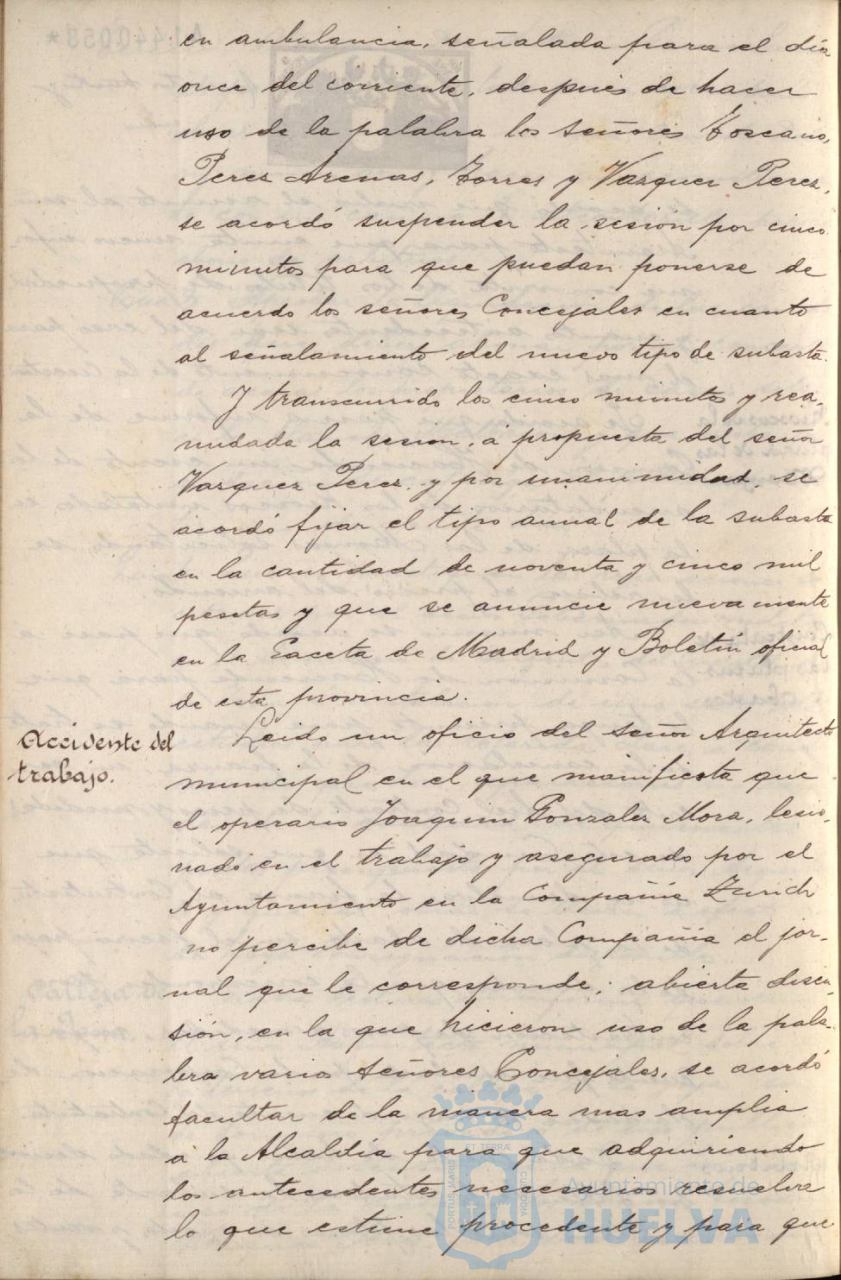 en ambulancia, señalada para el día
once del corriente, después de hacer
uso de la palabra los señores Toscano,
Perez Arenas, Torres y Vazquez Perez,
se acordó suspender la sesión por cinco
minutos para que puedan ponerse de
acuerdo los señores Concejales en cuanto
al señalamiento del nuevo tipo de subasta.
Y transcurrido los cinco minutos y rea-
nudada la sesion, a propuesta del señor
Vazquez Perez, y por unanimidad, se
acordó fijar el tipo anual de la subasta
en la cantidad de noventa y cinco mil
pesetas y que se anuncie nuevamente
en la Gaceta de Madrid y Boletín oficial
de esta provincia.
Accidente del
trabajo.
Leido un oficio del señor Arquitecto
municipal en el que manifiesta que
el operario Joaquin Gonzalez Mora, lesio-
nado en el trabajo y asegurado por el
Ayuntamiento en la Compañía Zurich
no percibe de dicha Compañia el jor-
nal que le corresponde; abierta discu-
sión, en la que hicieron uso de la pala-
bra vario señores Concejales, se acordó
facultar de la manera mas amplia
a la Alcaldía para que adquiriendo
los antecedentes necesarios resuelva
lo que estime procedente y para que
Ayuntamiento de
HUELVA